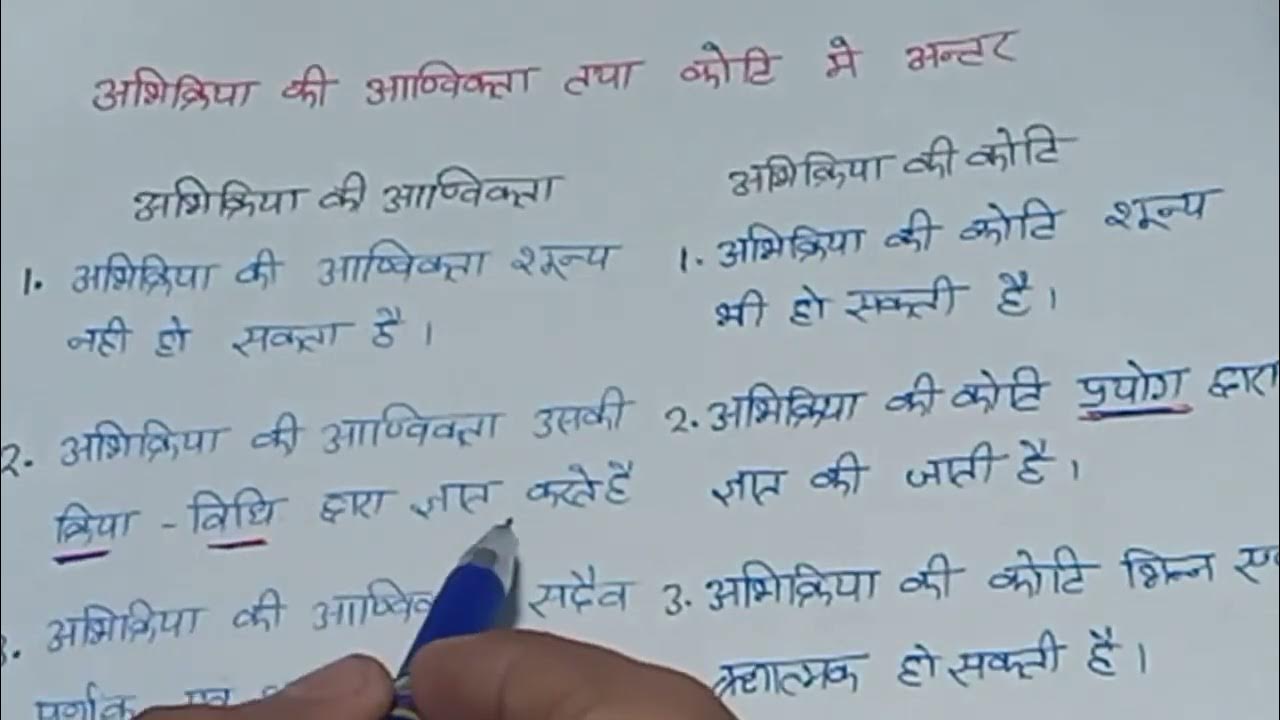 अभिक्रिया की आण्विकता तथा कोटि मे अन्तर
अभिक्रिया की आण्विकता
1. अभिक्रिया की आण्विकता शून्य
नही हो सकता है।
2. अभिक्रिया की आण्विकता उसकी
क्रिया - विधि द्वारा ज्ञात करते है
3. अभिक्रिया की सदैव
पूर्णांक एव
अभिक्रिया की कोटि
1. अभिक्रिया की कोटि शून्य
भी हो सकती है।
2. अभिक्रिया की कोटि प्रयोग द्वारा
ज्ञात की जाती है।
3. अभिक्रिया की कोटि भिन्न
ऋणात्मक हो सकती है।